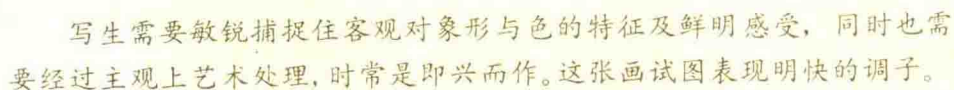 写生需要敏锐捕捉住客观对象形与色的特征及鲜明感受，同时也需
要经过主观上艺术处理，时常是即兴而作。这张画试图表现明快的调子。